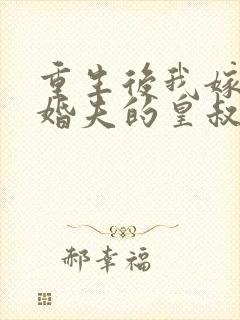 重生後我嫁
婚夫的皇叔
郝幸福